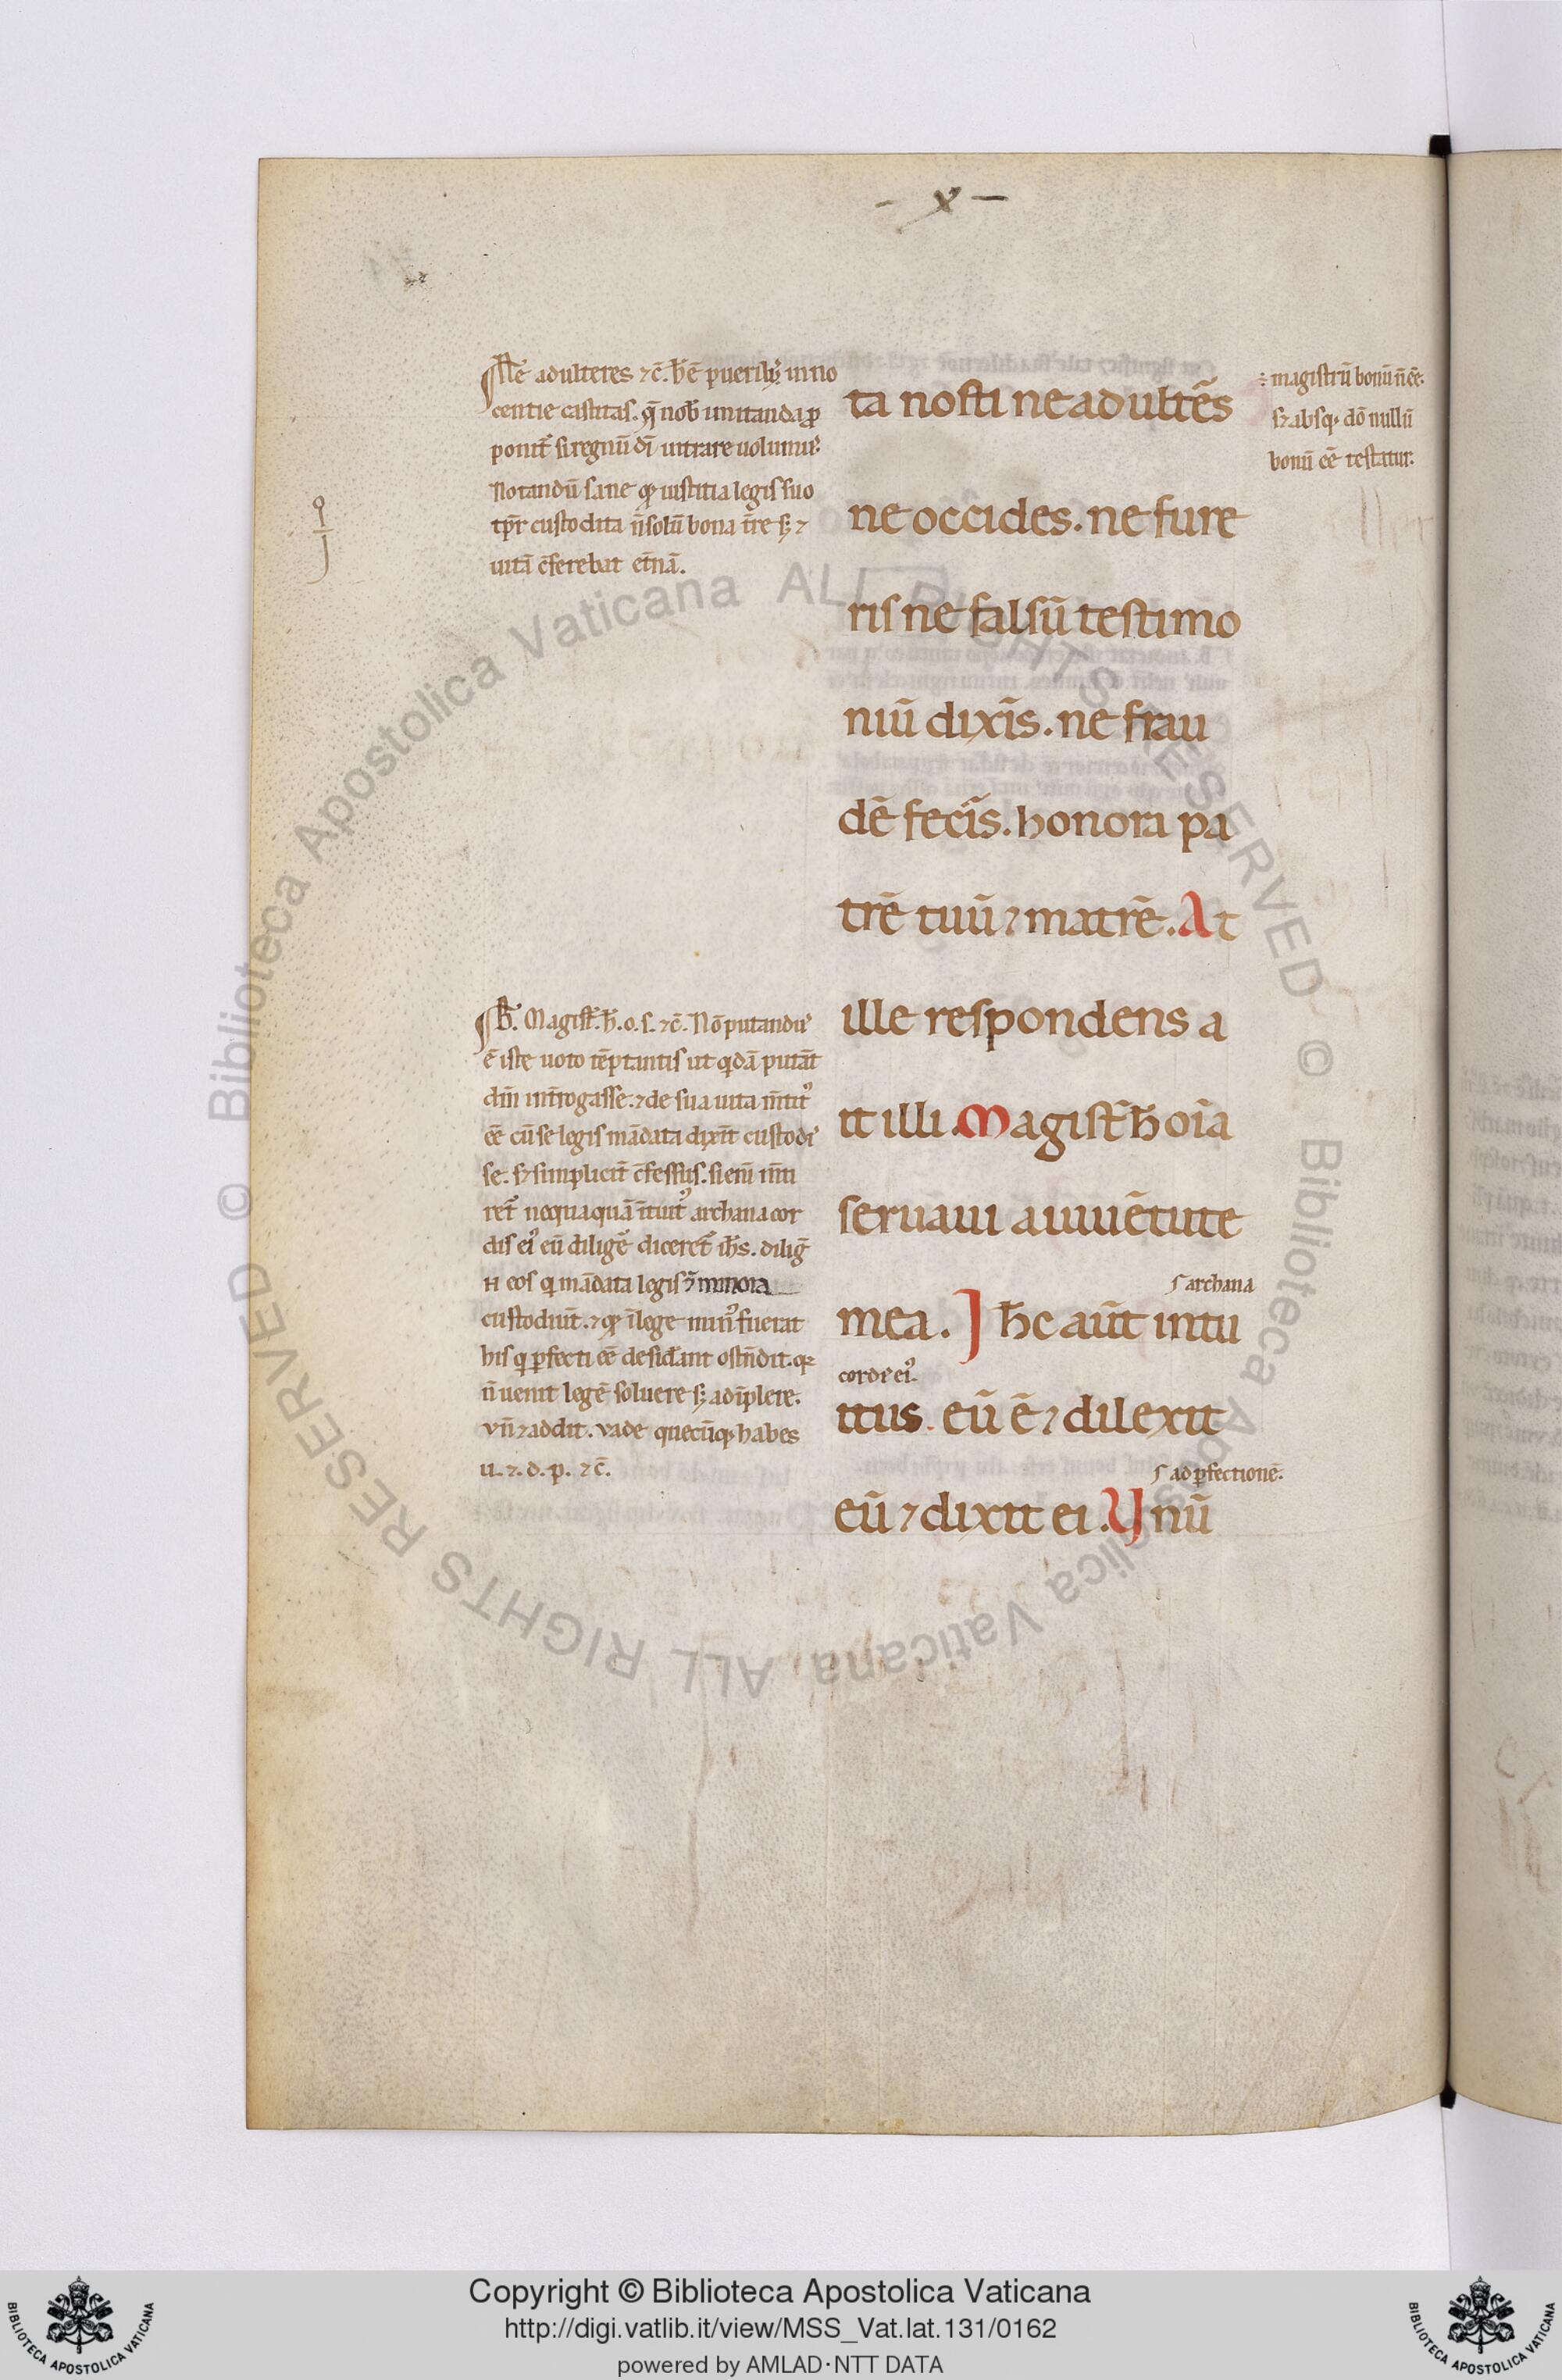 - x -
¶Ne adulteres ⁊c̄. h̄ ē puerilis inno
centie castitas. q̄ nob̄ imitanda p̄
ponit̄ si regnū dī intrare uolumus.
Notandū sane qd̓ iustitia legis suo
tp̄r custodita n̄ solū bona t̄re sꝫ ⁊
uitā c̄ferebat et̄nā.
ta nosti ne adult̄es
ne occides. ne fure
ris ne falsū testimo
niū dixīs. ne frau
dē fecīs. honora pa
trē tuū ⁊ matrē. At
ille respondens a
it illi. Magist̄ h̄ oīa
seruaui a iuuētute
s archana
mea. J h̄c aūt intu
cordis ei᾽.
itus. eū ē ⁊ dilexit
s ad ꝑfectionē.
eū ⁊ dixit ei. Vnū
magistrū bonū n̄ eē.
sꝫ absqꝫ dō nullū
bonū eē testatur.
¶B̄. Magist̄. h̄. o. s. ⁊c̄. Nō putandus
ē iste uoto tēptantis ut qͥdā putāt
dn̄m int̄rogasse. ⁊ de sua uita m̄titus
eē cū se legis mādata dixit̄ custodis
se. sꝫ simplicit̄ c̄fessus. si eni᷑ m̄ti
ret̄ nequaquā ītuitus archana cor
dis ei᾽ eū diligē diceret̄ ih̄s. diliḡ
n̄ eos qͥ mādata legis minora
custodiūt. ⁊ qd̓ ī lege min᾽ fuerat
his qͥ ꝑfecti eē desid̄ant ost̄ndit. qꝫ
n̄ uenit legē soluere sꝫ adīplere.
vn̄ ⁊ addit. vade quecūqꝫ habes
u. ⁊. d. p. ⁊c̄.
Copyright © Biblioteca Apostolica Vaticana
http://digi.vatlib.it/view/MSS_Vat.lat.131/0162
powered by AMLAD·NTT DATA
BIBLIOTECA APOSTOLICA VATICANA
BIBLIOTECA APOSTOLICA VATICANA
© Biblioteca Apostolica Vaticana ALL RIGHTS RESERVED © Biblioteca Apostolica Vaticana ALL RIGHTS RESERVED